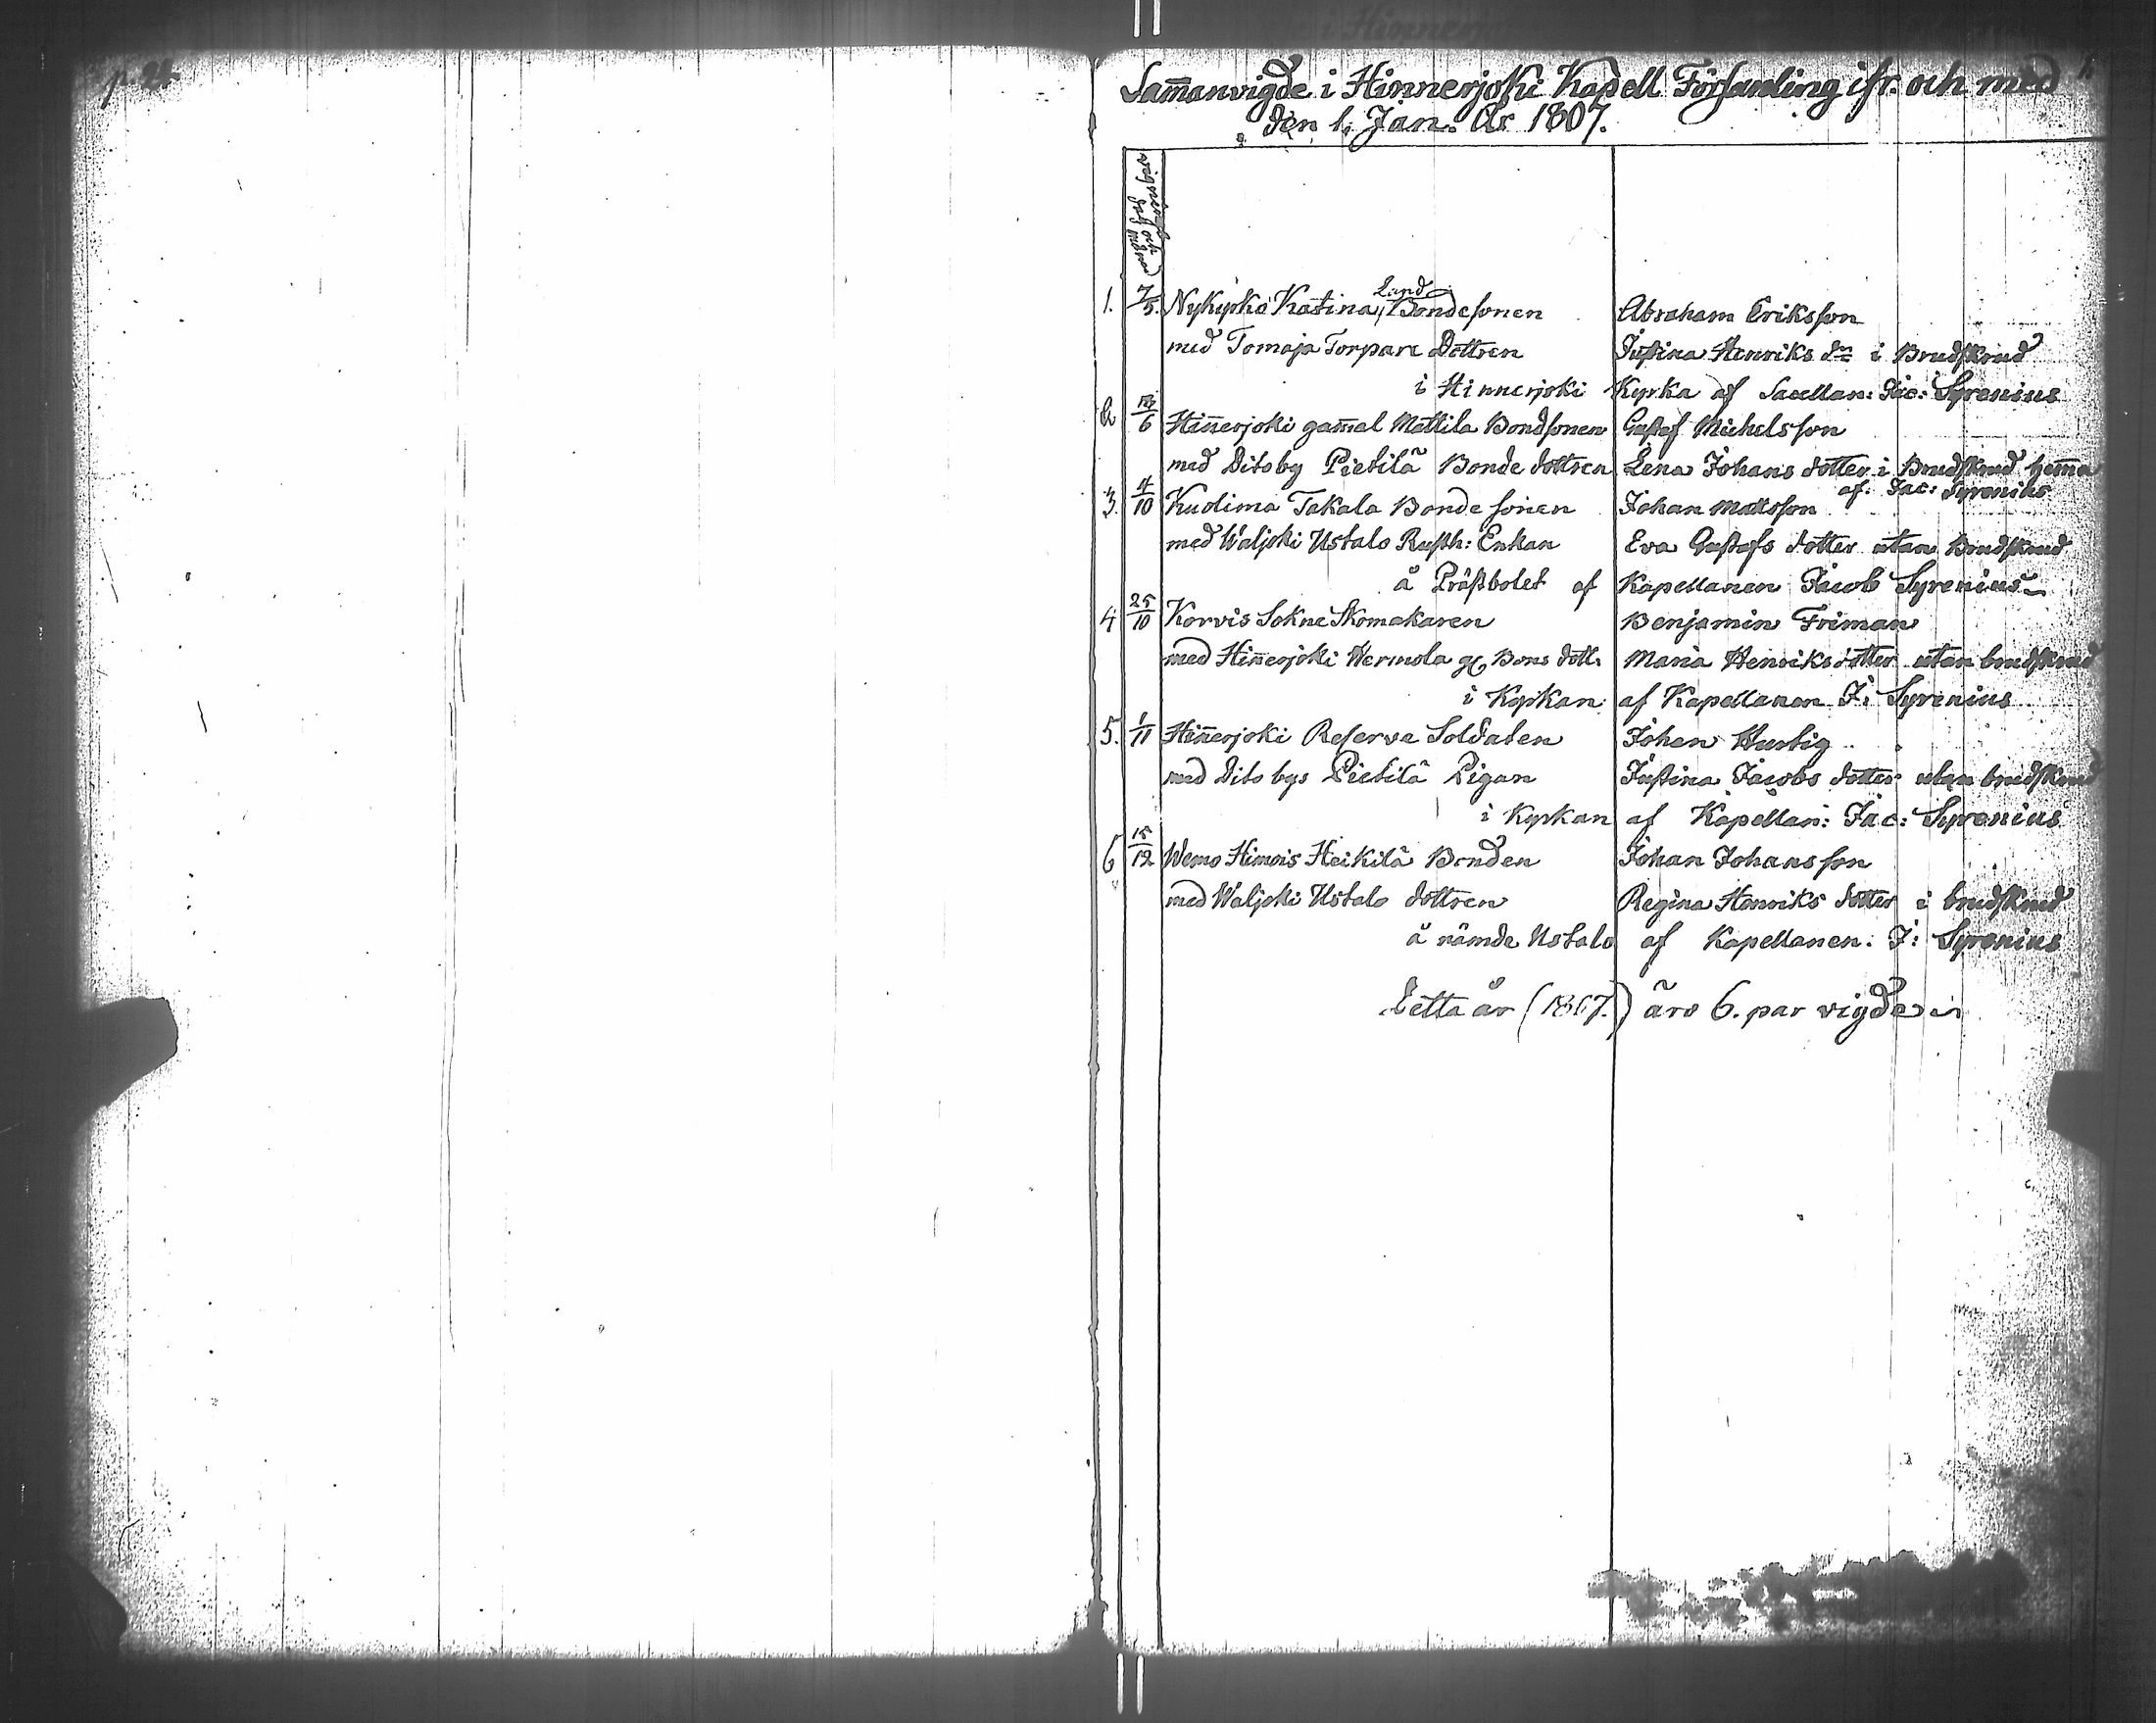 p. 24
Sam̄anvigde i Hinnerjoki Kapell Församling ifr. och med
den 1. Jan. År 1807.
1. 7/5. Nykyrko Katina, Land Bondesonen Abraham Eriksson
med Tomaja Torpare Dottren Justina Henriks dr i Brudskrud
i Hinnerjoki Kyrka af Sacellan: Jac: Syrenius
2 /6 Hin̄erjoki gam̄al Mattila Bondsonen Gustaf Michelsson
med Ditoby Pietilä Bonde dottren Lena Johans dotter i Brudskrud hem̄a
af: Jac: Syrenius
3. 4/10 Kuolima Takala Bonde sonen Johan Mattsson
med Waljoki Ustalo Rusth: Enkan Eva Gustafs dotter utan Brudskrud
å Prästbolet af Kapellanen Jacob Syrenius
4 25/10 Korvis Sokne Skomakaren Benjamin Friman
med Hin̄erjoki Wermola Bons dott: Maria Henriks dotter utan brudskrud
i Kyrkan af Kapellanen J: Syrenius
5. 1/11 Hin̄erjoki Reserve Soldaten Johan Hurtig
med dito bys Pietilä Pigan Justina Jacobs dotter utan brudskrud
i Kyrkan af Kapellan: Jac: Syrenius
6 15/12 Wemo Himois Heikilä Bonden Johan Johansson
med Waljoki Ustalo dottren Regina Henriks dotter i brudskrud
å nämde Ustalo af Kapellanen: J: Syrenius
Detta år (1807.) äro 6. par vigde